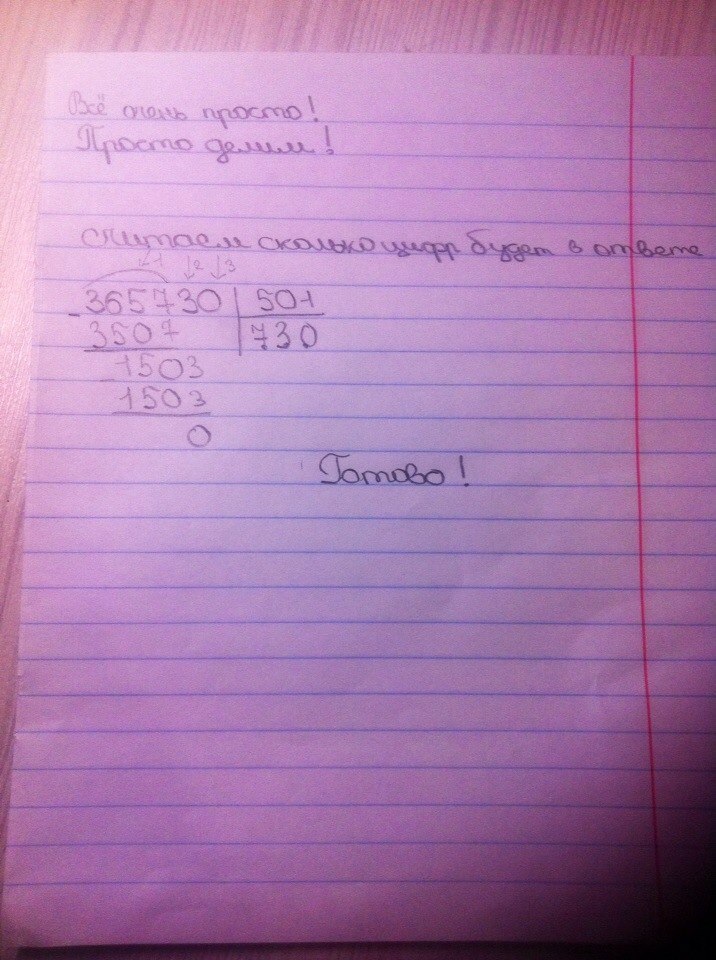 Всё очень просто!
Просто делим!
считаем сколько цифр будет в ответе
1 2 3
- 365730 | 501
3507 | 730
- 1503
1503
0
Готово!